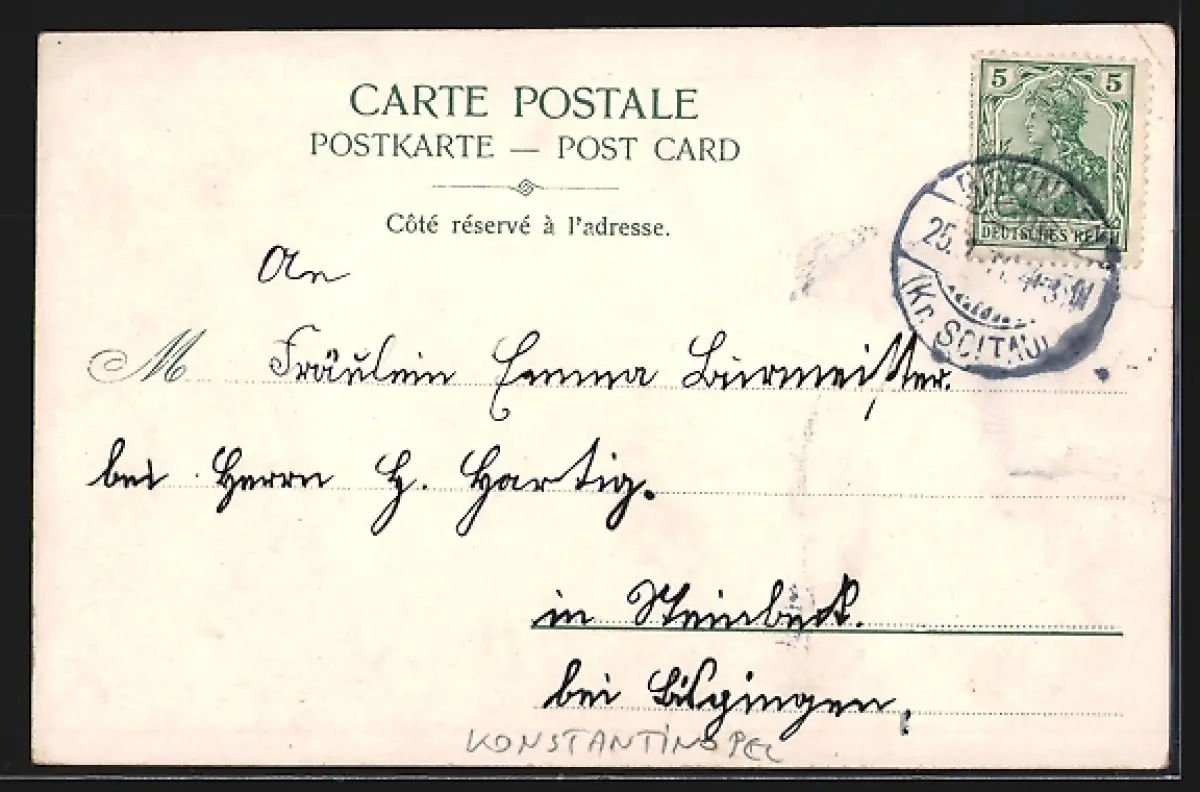 CARTE POSTALE
POSTKARTE — POST CARD
Côté réservé à l'adresse.
5 5
DEUTSCHES REICH
25.
(Kr. SOLTAU)
An
M Fräulein Emma Burmeister.
bei Herrn H. Hartig.
in Steinbeck.
bei Bispingen.
KONSTANTINOPEL